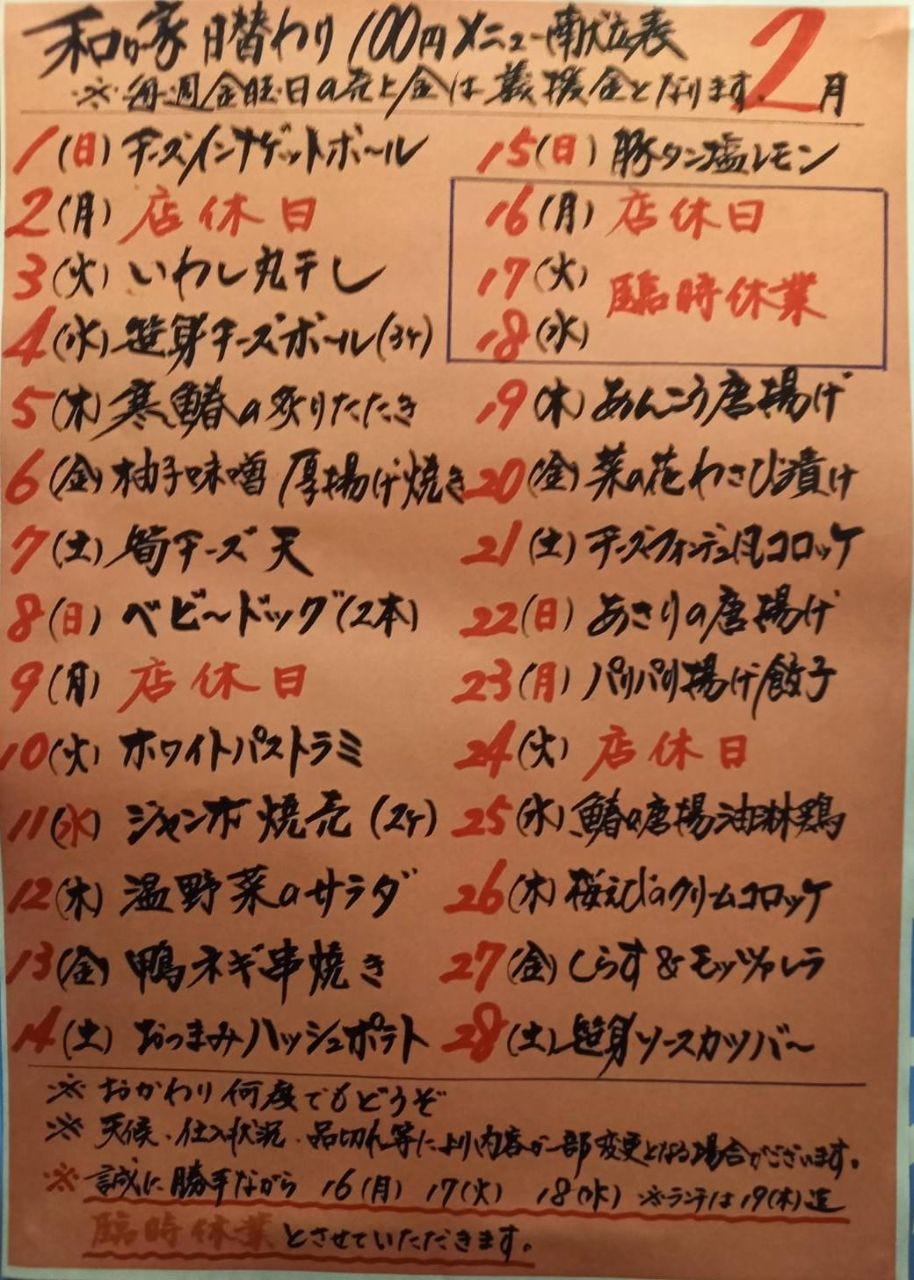 和い家 日替わり 100円メニュー献立表 2月
※ 毎週金曜日の売上金は義援金となります。
1(日) チーズインナゲットボール
2(月) 店休日
3(火) いわし丸干し
4(水) 笹身チーズボール(3ヶ)
5(木) 寒鰆の炙りたたき
6(金) 柚子味噌 厚揚げ焼き
7(土) 筍チーズ天
8(日) ベビードッグ(2本)
9(月) 店休日
10(火) ホワイトパストラミ
11(水) ジャンボ焼売(2ヶ)
12(木) 温野菜のサラダ
13(金) 鴨ネギ串焼き
14(土) おつまみハッシュポテト
15(日) 豚タン塩レモン
16(月) 店休日
17(火) 臨時休業
18(水)
19(木) あんこう唐揚げ
20(金) 菜の花わさび漬け
21(土) チーズフォンデュ風コロッケ
22(日) あさりの唐揚げ
23(月) パリパリ揚げ餃子
24(火) 店休日
25(水) 鰆の唐揚油淋鶏
26(木) 桜えびのクリームコロッケ
27(金) しらす&モッツァレラ
28(土) 笹身ソースカツバー
※ おかわり何度でもどうぞ
※ 天候・仕入状況・品切れ等により内容が一部変更となる場合がございます。
※ 誠に勝手ながら 16(月) 17(火) 18(水) ※ランチは19(木)迄
臨時休業とさせていただきます。